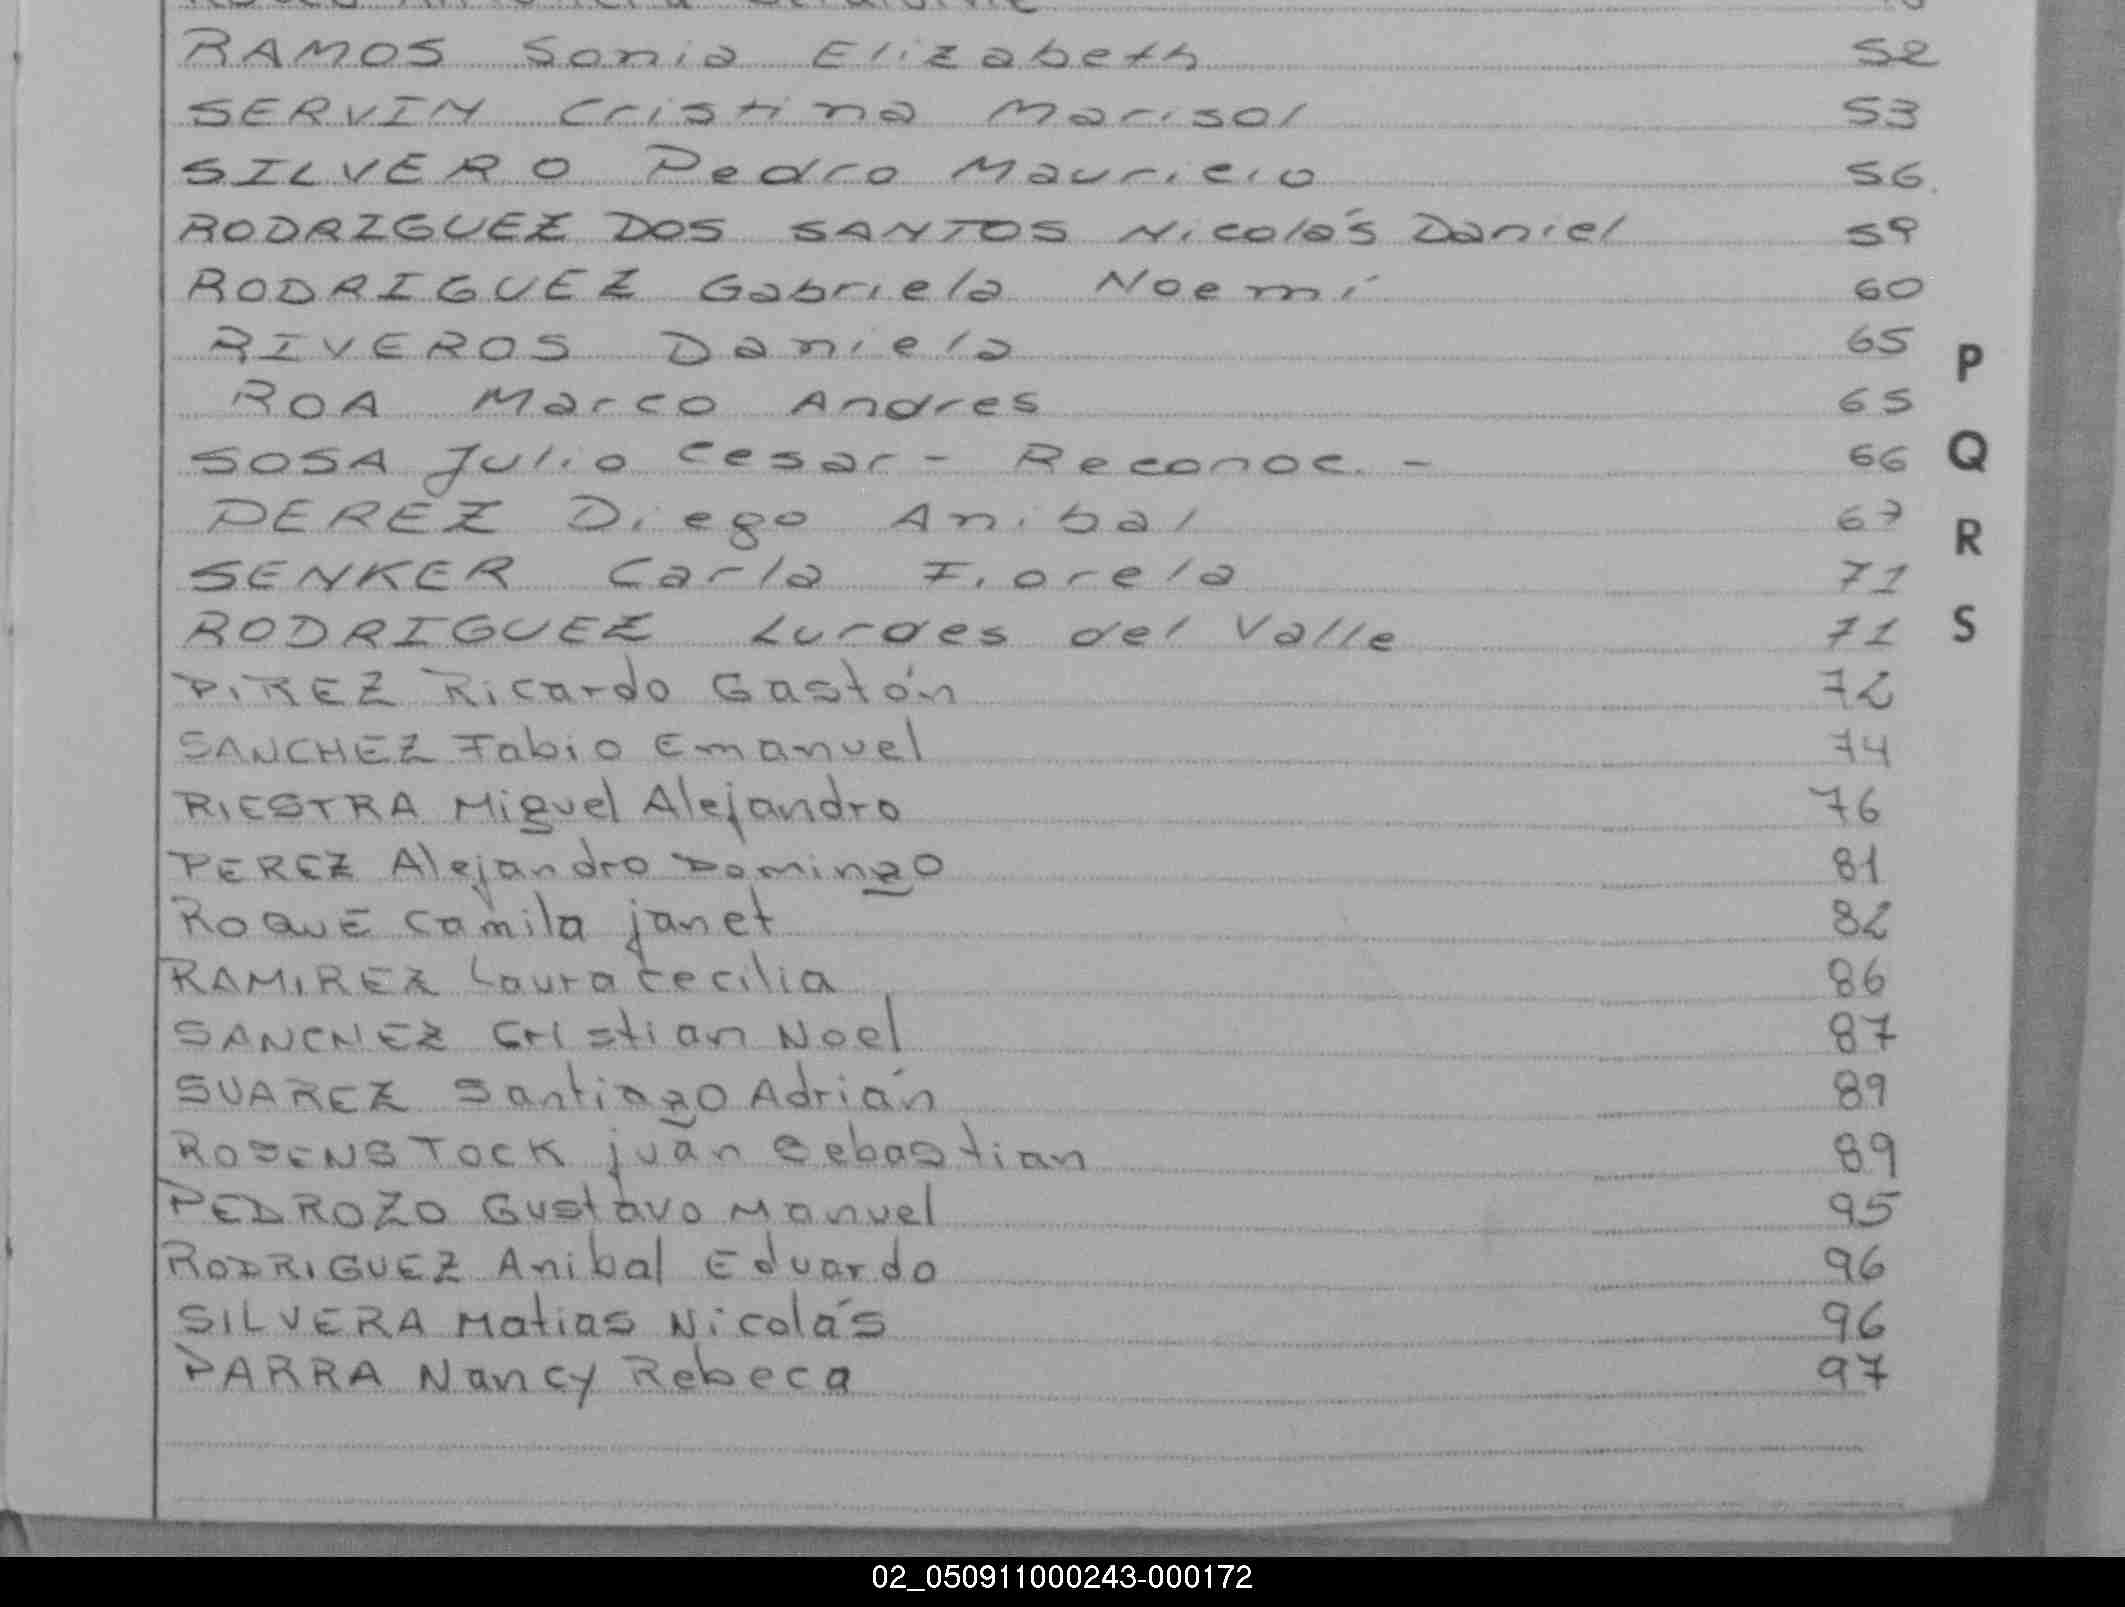 RAMOS Sonia Elizabeth 52
SERVIN Cristina Marisol 53
SILVERO Pedro Mauricio 56
RODRIGUEZ DOS SANTOS Nicolás Daniel 59
RODRIGUEZ Gabriela Noemí 60
RIVEROS Daniela 65
ROA Marco Andres 65
SOSA Julio Cesar - Reconoc. - 66
PEREZ Diego Anibal 67
SENKER Carla Fiorela 71
RODRIGUEZ Lurdes del Valle 71
PIREZ Ricardo Gastón 72
SANCHEZ Fabio Emanuel 74
RIESTRA Miguel Alejandro 76
PEREZ Alejandro Domingo 81
ROQUE Camila janet 82
RAMIREZ Laura Cecilia 86
SANCHEZ Cristian Noel 87
SUAREZ Santiago Adrián 89
ROSENSTOCK juan Sebastian 89
PEDROZO Gustavo Manuel 95
RODRIGUEZ Anibal Eduardo 96
SILVERA Matias Nicolás 96
PARRA Nancy Rebeca 97
P
Q
R
S
02_050911000243-000172